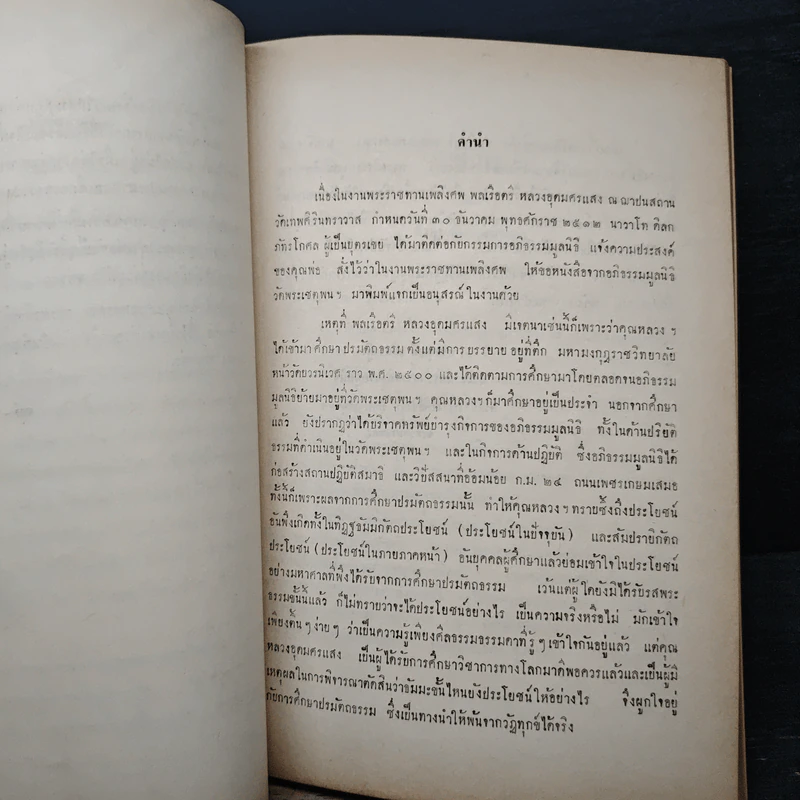 คำนำ
เนื่องในงานพระราชทานเพลิงศพ พลเรือตรี หลวงอุดมศรแสง ณ ฌาปนสถาน
วัดเทพศิรินทราวาส กำหนดวันที่ ๓๐ ธันวาคม พุทธศักราช ๒๕๑๒ นาวาโท ดิลก
ภัทรโกศล ผู้เป็นบุตรเขย ได้มาติดต่อกับกรรมการอภิธรรมมูลนิธิ แจ้งความประสงค์
ของคุณพ่อ สั่งไว้ว่าในงานพระราชทานเพลิงศพ ให้ขอหนังสือจากอภิธรรมมูลนิธิ
วัดพระเชตุพนฯ มาพิมพ์แจกเป็นอนุสรณ์ในงานด้วย
เหตุที่ พลเรือตรี หลวงอุดมศรแสง มีเจตนาเช่นนี้ก็เพราะว่าคุณหลวง ฯ
ได้เข้ามาศึกษาปรมัตถธรรม ตั้งแต่มีการบรรยาย อยู่ที่ตึก มหามงกุฎราชวิทยาลัย
หน้าวัดบวรนิเวศ ราว พ.ศ. ๒๕๐๐ และได้ติดตามการศึกษามาโดยตลอดจนอภิธรรม
มูลนิธิย้ายมาอยู่ที่วัดพระเชตุพนฯ คุณหลวงฯก็มาศึกษาอยู่เป็นประจำ นอกจากศึกษา
แล้ว ยังปรากฏว่าได้บริจาคทรัพย์บำรุงกิจการของอภิธรรมมูลนิธิ ทั้งในด้านปริยัติ
ธรรมที่ดำเนินอยู่ในวัดพระเชตุพนฯ และในกิจการด้านปฏิบัติ ซึ่งอภิธรรมมูลนิธิได้
ก่อสร้างสถานปฏิบัติสมาธิ และวิปัสสนาที่อ้อมน้อย ก.ม. ๒๔ ถนนเพชรเกษมเสมอ
ทั้งนี้ก็เพราะผลจากการศึกษาปรมัตถธรรมนั้น ทำให้คุณหลวง ฯ ทราบซึ้งถึงประโยชน์
อันพึงเกิดทั้งในทิฏฐธัมมิกัตถประโยชน์ (ประโยชน์ในปัจจุบัน) และสัมปรายิกัตถ
ประโยชน์ (ประโยชน์ในภายภาคหน้า) อันบุคคลผู้ศึกษาแล้วย่อมเข้าใจในประโยชน์
อย่างมหาศาลที่พึงได้รับจากการศึกษาปรมัตถธรรม เว้นแต่ผู้ใดยังมิได้รับรสพระ
ธรรมขั้นนี้แล้ว ก็ไม่ทราบว่าจะได้ประโยชน์อย่างไร เป็นความจริงหรือไม่ มักเข้าใจ
เพียงตื้นๆง่ายๆ ว่าเป็นความรู้เพียงศีลธรรมธรรมดาที่รู้ๆเข้าใจกันอยู่แล้ว แต่คุณ
หลวงอุดมศรแสง เป็นผู้ได้รับการศึกษาวิชาการทางโลกมาดีพอควรแล้วและเป็นผู้มี
เหตุผลในการพิจารณาตัดสินว่าธัมมะชั้นไหนยังประโยชน์ให้อย่างไร จึงผูกใจอยู่
กับการศึกษาปรมัตถธรรม ซึ่งเป็นทางนำให้พ้นจากวัฏทุกข์ได้จริง